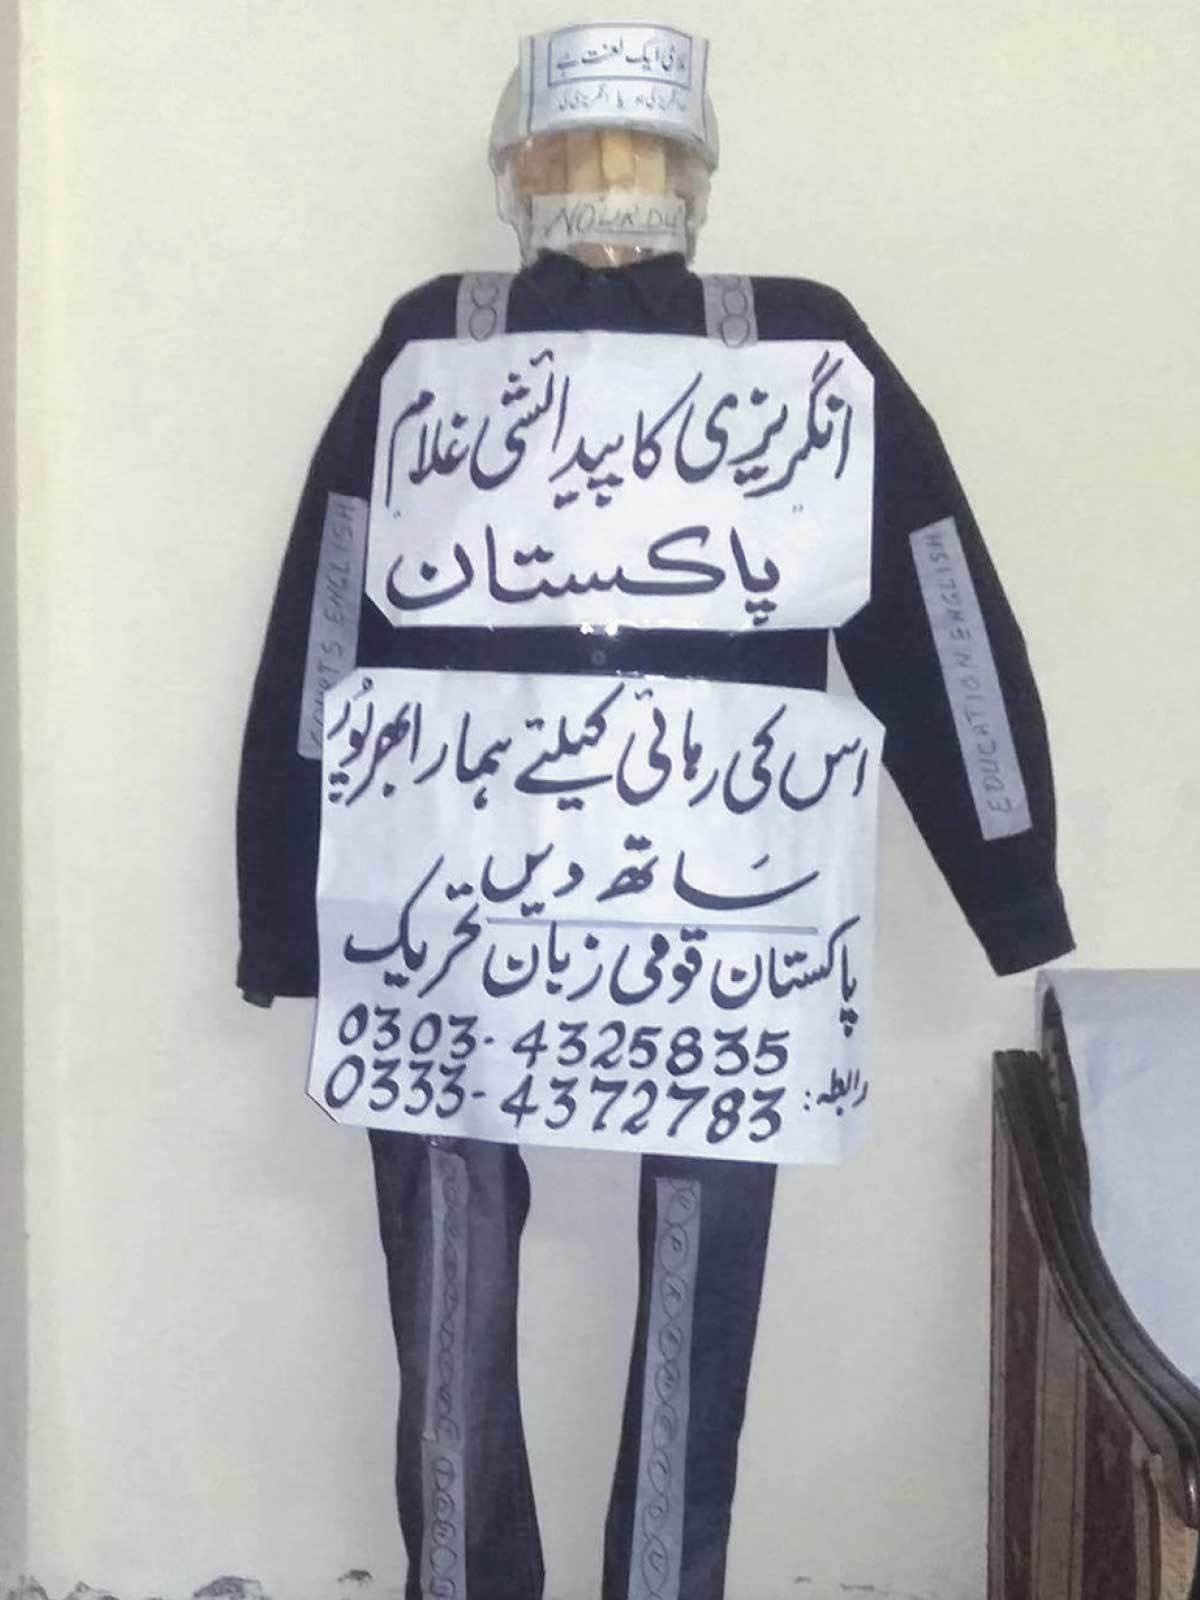 غلامی ایک لعنت ہے
انگریز کی ہو یا انگریزی کی
NO URDU
انگریزی کا پیدائشی غلام
"پاکستان"
COURTS ENGLISH
EDUCATION ENGLISH
اس کی رہائی کیلئے ہمارا بھرپُور
سَاتھ دیں
پاکستان قومی زبان تحریک
0303-4325835
رابطہ: 0333-4372783